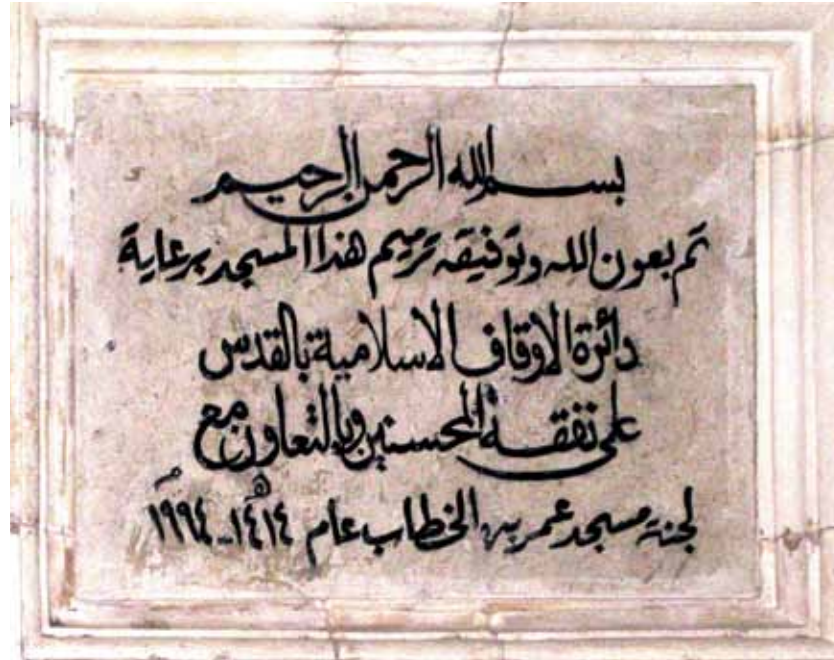 بسم الله الرحمن الرحيم
تم بعون الله وتوفيقه ترميم هذا المسجد برعاية
دائرة الاوقاف الاسلامية بالقدس
على نفقة المحسنين وبالتعاون مع
لجنة مسجد عمر بن الخطاب عام ١٤١٤هـ - ١٩٩٤م